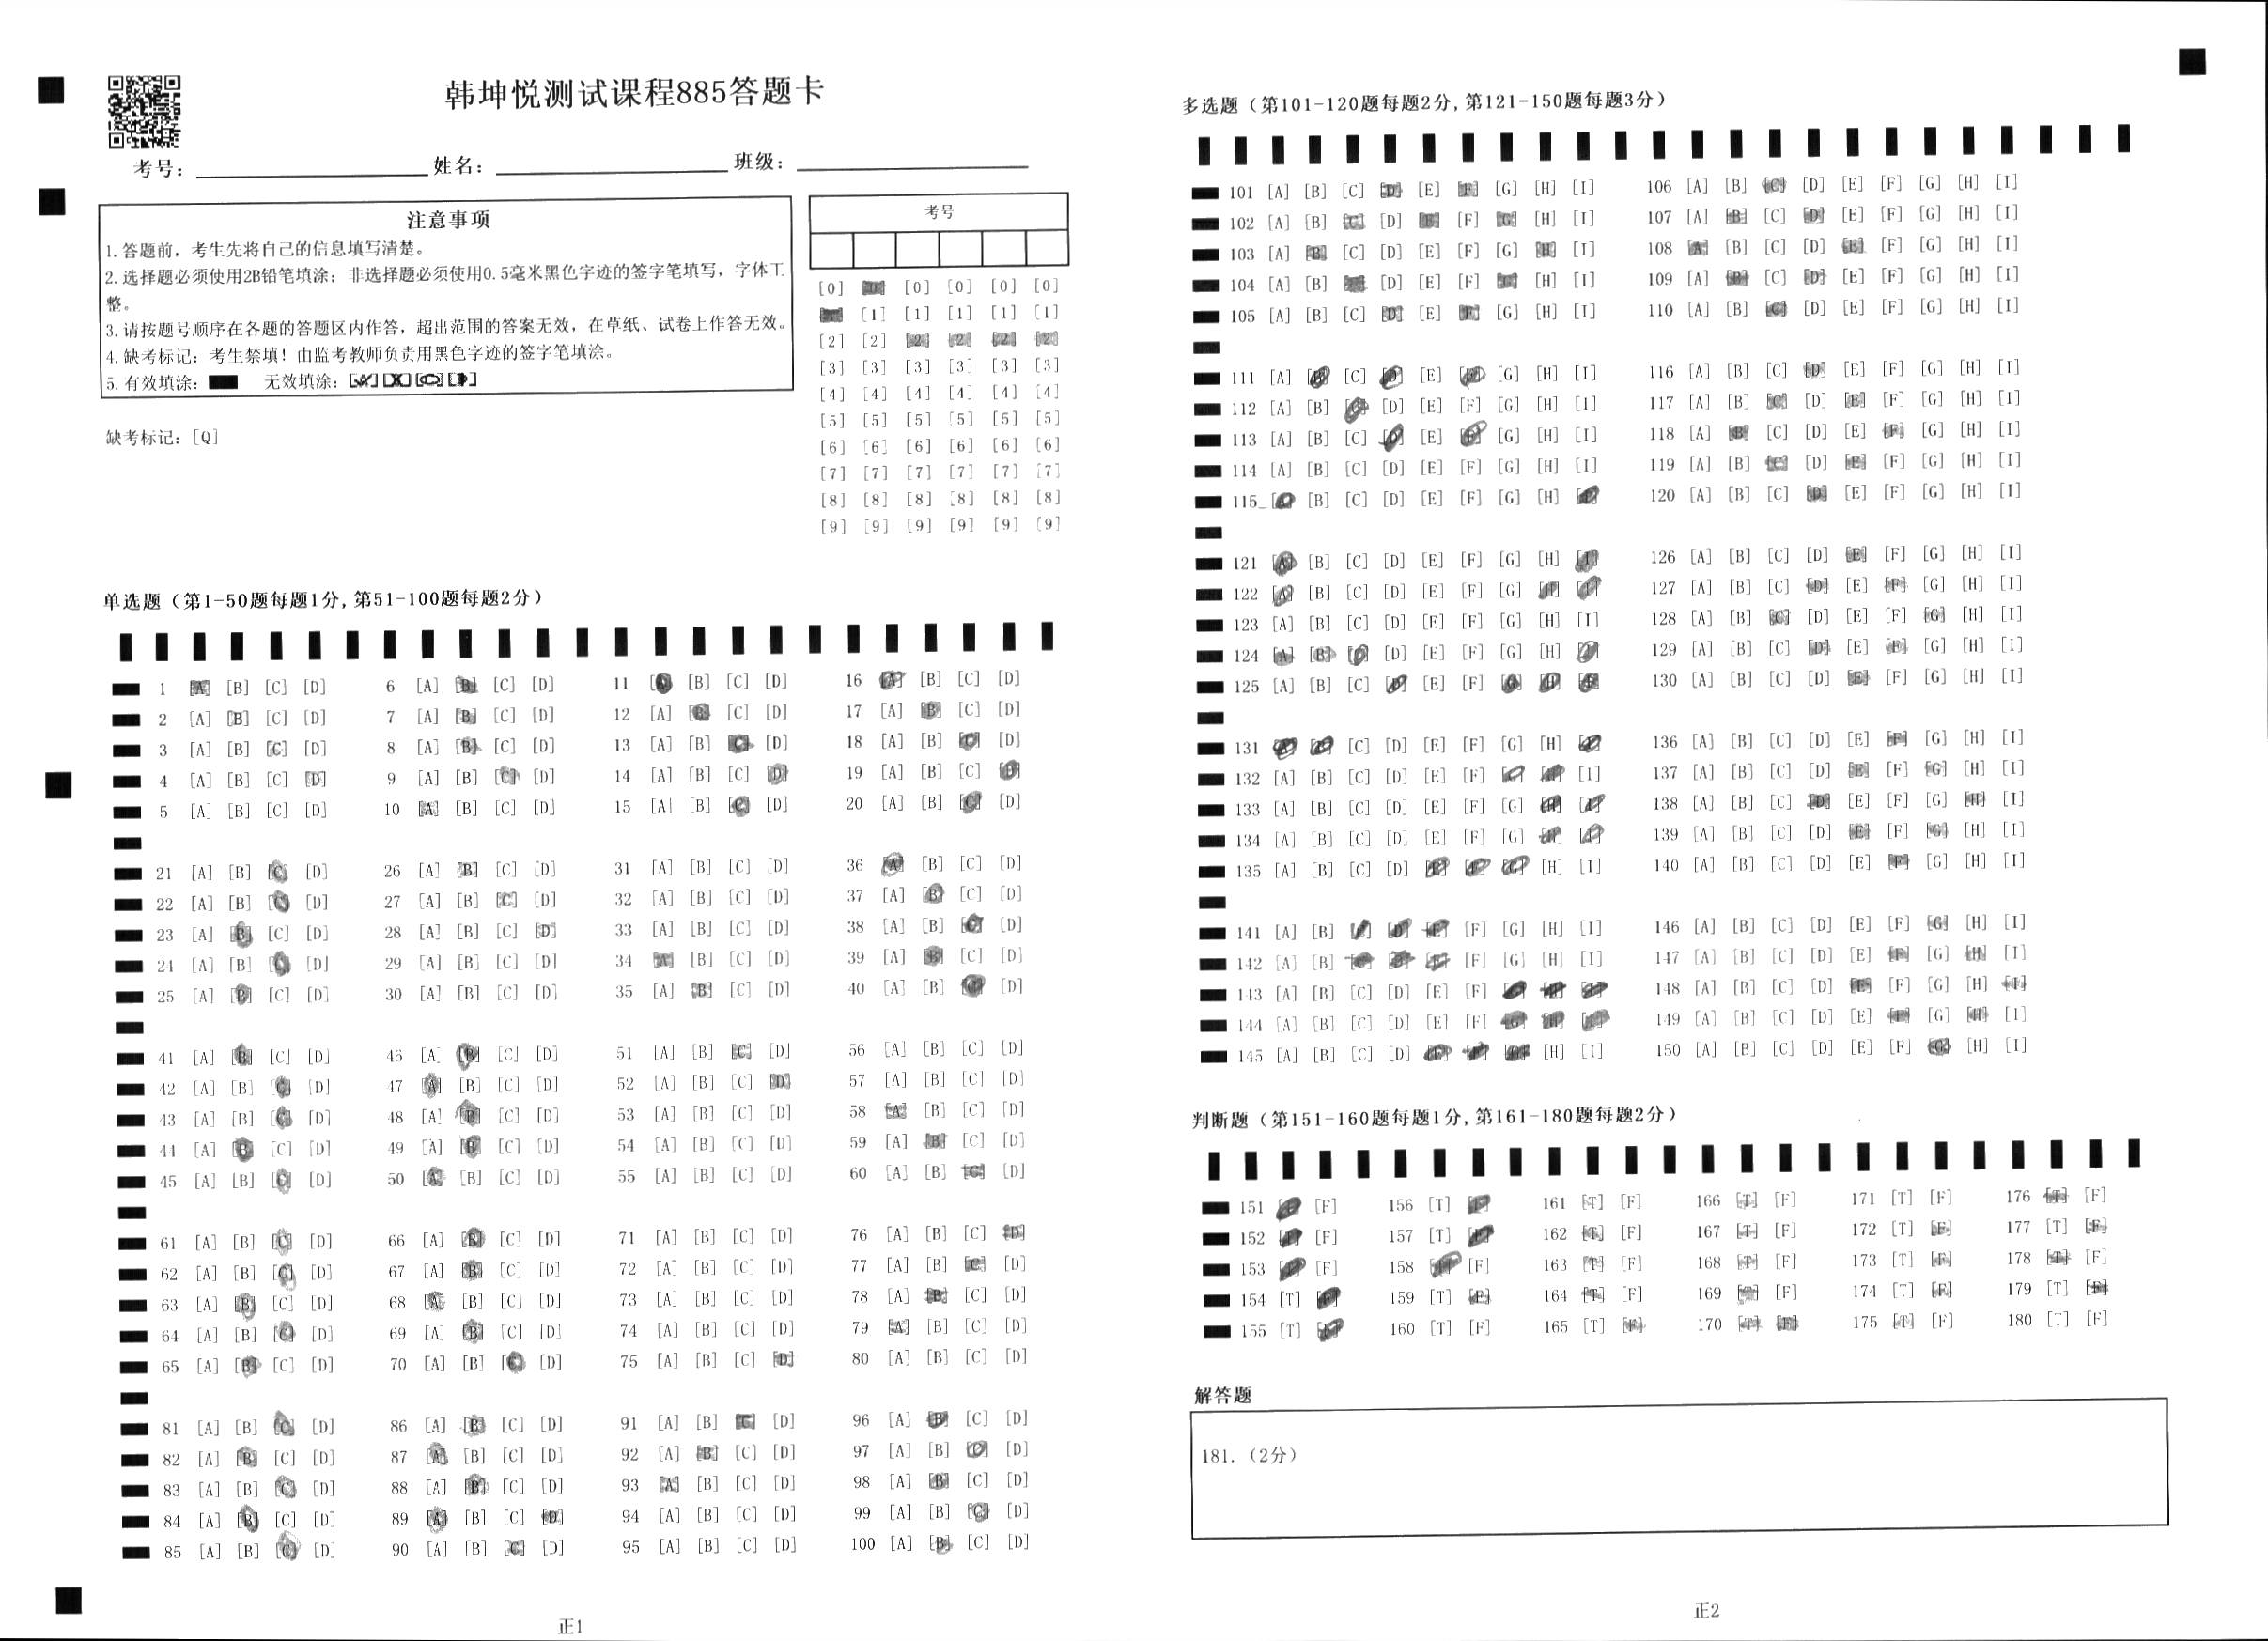 韩坤悦测试课程885答题卡
考号: 姓名: 班级:
注意事项
1.答题前，考生先将自己的信息填写清楚。
2.选择题必须使用2B铅笔填涂；非选择题必须使用0.5毫米黑色字迹的签字笔填写，字体工
整。
3.请按题号顺序在各题的答题区内作答，超出范围的答案无效，在草纸、试卷上作答无效。
4.缺考标记：考生禁填！由监考教师负责用黑色字迹的签字笔填涂。
5.有效填涂: 无效填涂:
缺考标记: [Q]
考号
[0] [0] [0] [0] [0] [0]
[1] [1] [1] [1] [1]
[2] [2] [2] [2] [2] [2]
[3] [3] [3] [3] [3] [3]
[4] [4] [4] [4] [4] [4]
[5] [5] [5] [5] [5] [5]
[6] [6] [6] [6] [6] [6]
[7] [7] [7] [7] [7] [7]
[8] [8] [8] [8] [8] [8]
[9] [9] [9] [9] [9] [9]
单选题（第1-50题每题1分,第51-100题每题2分）
1 [A] [B] [C] [D] 6 [A] [B] [C] [D] 11 [A] [B] [C] [D] 16 [A] [B] [C] [D]
2 [A] [B] [C] [D] 7 [A] [B] [C] [D] 12 [A] [B] [C] [D] 17 [A] [B] [C] [D]
3 [A] [B] [C] [D] 8 [A] [B] [C] [D] 13 [A] [B] [C] [D] 18 [A] [B] [C] [D]
4 [A] [B] [C] [D] 9 [A] [B] [C] [D] 14 [A] [B] [C] [D] 19 [A] [B] [C] [D]
5 [A] [B] [C] [D] 10 [A] [B] [C] [D] 15 [A] [B] [C] [D] 20 [A] [B] [C] [D]
21 [A] [B] [C] [D] 26 [A] [B] [C] [D] 31 [A] [B] [C] [D] 36 [A] [B] [C] [D]
22 [A] [B] [C] [D] 27 [A] [B] [C] [D] 32 [A] [B] [C] [D] 37 [A] [B] [C] [D]
23 [A] [B] [C] [D] 28 [A] [B] [C] [D] 33 [A] [B] [C] [D] 38 [A] [B] [C] [D]
24 [A] [B] [C] [D] 29 [A] [B] [C] [D] 34 [A] [B] [C] [D] 39 [A] [B] [C] [D]
25 [A] [B] [C] [D] 30 [A] [B] [C] [D] 35 [A] [B] [C] [D] 40 [A] [B] [C] [D]
41 [A] [B] [C] [D] 46 [A] [B] [C] [D] 51 [A] [B] [C] [D] 56 [A] [B] [C] [D]
42 [A] [B] [C] [D] 47 [A] [B] [C] [D] 52 [A] [B] [C] [D] 57 [A] [B] [C] [D]
43 [A] [B] [C] [D] 48 [A] [B] [C] [D] 53 [A] [B] [C] [D] 58 [A] [B] [C] [D]
44 [A] [B] [C] [D] 49 [A] [B] [C] [D] 54 [A] [B] [C] [D] 59 [A] [B] [C] [D]
45 [A] [B] [C] [D] 50 [A] [B] [C] [D] 55 [A] [B] [C] [D] 60 [A] [B] [C] [D]
61 [A] [B] [C] [D] 66 [A] [B] [C] [D] 71 [A] [B] [C] [D] 76 [A] [B] [C] [D]
62 [A] [B] [C] [D] 67 [A] [B] [C] [D] 72 [A] [B] [C] [D] 77 [A] [B] [C] [D]
63 [A] [B] [C] [D] 68 [A] [B] [C] [D] 73 [A] [B] [C] [D] 78 [A] [B] [C] [D]
64 [A] [B] [C] [D] 69 [A] [B] [C] [D] 74 [A] [B] [C] [D] 79 [A] [B] [C] [D]
65 [A] [B] [C] [D] 70 [A] [B] [C] [D] 75 [A] [B] [C] [D] 80 [A] [B] [C] [D]
81 [A] [B] [C] [D] 86 [A] [B] [C] [D] 91 [A] [B] [C] [D] 96 [A] [B] [C] [D]
82 [A] [B] [C] [D] 87 [A] [B] [C] [D] 92 [A] [B] [C] [D] 97 [A] [B] [C] [D]
83 [A] [B] [C] [D] 88 [A] [B] [C] [D] 93 [A] [B] [C] [D] 98 [A] [B] [C] [D]
84 [A] [B] [C] [D] 89 [A] [B] [C] [D] 94 [A] [B] [C] [D] 99 [A] [B] [C] [D]
85 [A] [B] [C] [D] 90 [A] [B] [C] [D] 95 [A] [B] [C] [D] 100 [A] [B] [C] [D]
正1
多选题（第101-120题每题2分,第121-150题每题3分）
101 [A] [B] [C] [D] [E] [F] [G] [H] [I] 106 [A] [B] [C] [D] [E] [F] [G] [H] [I]
102 [A] [B] [C] [D] [E] [F] [G] [H] [I] 107 [A] [B] [C] [D] [E] [F] [G] [H] [I]
103 [A] [B] [C] [D] [E] [F] [G] [H] [I] 108 [A] [B] [C] [D] [E] [F] [G] [H] [I]
104 [A] [B] [C] [D] [E] [F] [G] [H] [I] 109 [A] [B] [C] [D] [E] [F] [G] [H] [I]
105 [A] [B] [C] [D] [E] [F] [G] [H] [I] 110 [A] [B] [C] [D] [E] [F] [G] [H] [I]
111 [A] [B] [C] [D] [E] [F] [G] [H] [I] 116 [A] [B] [C] [D] [E] [F] [G] [H] [I]
112 [A] [B] [C] [D] [E] [F] [G] [H] [I] 117 [A] [B] [C] [D] [E] [F] [G] [H] [I]
113 [A] [B] [C] [D] [E] [F] [G] [H] [I] 118 [A] [B] [C] [D] [E] [F] [G] [H] [I]
114 [A] [B] [C] [D] [E] [F] [G] [H] [I] 119 [A] [B] [C] [D] [E] [F] [G] [H] [I]
115 [A] [B] [C] [D] [E] [F] [G] [H] [I] 120 [A] [B] [C] [D] [E] [F] [G] [H] [I]
121 [A] [B] [C] [D] [E] [F] [G] [H] [I] 126 [A] [B] [C] [D] [E] [F] [G] [H] [I]
122 [A] [B] [C] [D] [E] [F] [G] [H] [I] 127 [A] [B] [C] [D] [E] [F] [G] [H] [I]
123 [A] [B] [C] [D] [E] [F] [G] [H] [I] 128 [A] [B] [C] [D] [E] [F] [G] [H] [I]
124 [A] [B] [C] [D] [E] [F] [G] [H] [I] 129 [A] [B] [C] [D] [E] [F] [G] [H] [I]
125 [A] [B] [C] [D] [E] [F] [G] [H] [I] 130 [A] [B] [C] [D] [E] [F] [G] [H] [I]
131 [A] [B] [C] [D] [E] [F] [G] [H] [I] 136 [A] [B] [C] [D] [E] [F] [G] [H] [I]
132 [A] [B] [C] [D] [E] [F] [G] [H] [I] 137 [A] [B] [C] [D] [E] [F] [G] [H] [I]
133 [A] [B] [C] [D] [E] [F] [G] [H] [I] 138 [A] [B] [C] [D] [E] [F] [G] [H] [I]
134 [A] [B] [C] [D] [E] [F] [G] [H] [I] 139 [A] [B] [C] [D] [E] [F] [G] [H] [I]
135 [A] [B] [C] [D] [E] [F] [G] [H] [I] 140 [A] [B] [C] [D] [E] [F] [G] [H] [I]
141 [A] [B] [C] [D] [E] [F] [G] [H] [I] 146 [A] [B] [C] [D] [E] [F] [G] [H] [I]
142 [A] [B] [C] [D] [E] [F] [G] [H] [I] 147 [A] [B] [C] [D] [E] [F] [G] [H] [I]
143 [A] [B] [C] [D] [E] [F] [G] [H] [I] 148 [A] [B] [C] [D] [E] [F] [G] [H] [I]
144 [A] [B] [C] [D] [E] [F] [G] [H] [I] 149 [A] [B] [C] [D] [E] [F] [G] [H] [I]
145 [A] [B] [C] [D] [E] [F] [G] [H] [I] 150 [A] [B] [C] [D] [E] [F] [G] [H] [I]
判断题（第151-160题每题1分,第161-180题每题2分）
151 [T] [F] 156 [T] [F] 161 [T] [F] 166 [T] [F] 171 [T] [F] 176 [T] [F]
152 [T] [F] 157 [T] [F] 162 [T] [F] 167 [T] [F] 172 [T] [F] 177 [T] [F]
153 [T] [F] 158 [T] [F] 163 [T] [F] 168 [T] [F] 173 [T] [F] 178 [T] [F]
154 [T] [F] 159 [T] [F] 164 [T] [F] 169 [T] [F] 174 [T] [F] 179 [T] [F]
155 [T] [F] 160 [T] [F] 165 [T] [F] 170 [T] [F] 175 [T] [F] 180 [T] [F]
解答题
181. (2分)
正2